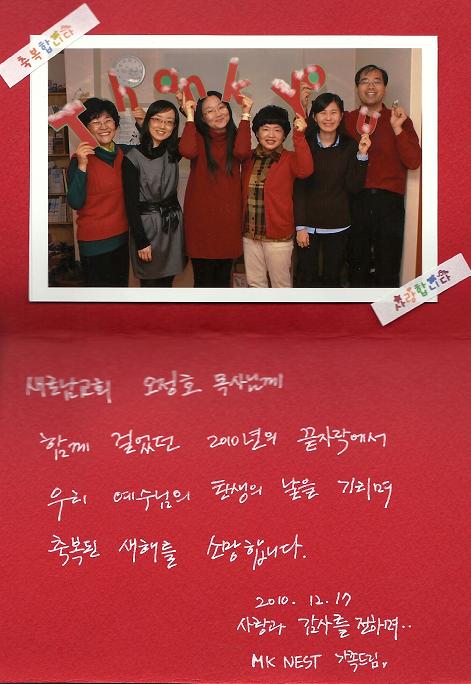 축복합니다
Thank yoU
사랑합니다
새로남교회 오정호 목사님께
함께 걸었던 2010년의 끝자락에서
우리 예수님의 탄생의 날을 기리며
축복된 새해를 소망합니다.
2010. 12. 17
사랑과 감사를 전하며..
MK NEST 가족드림.